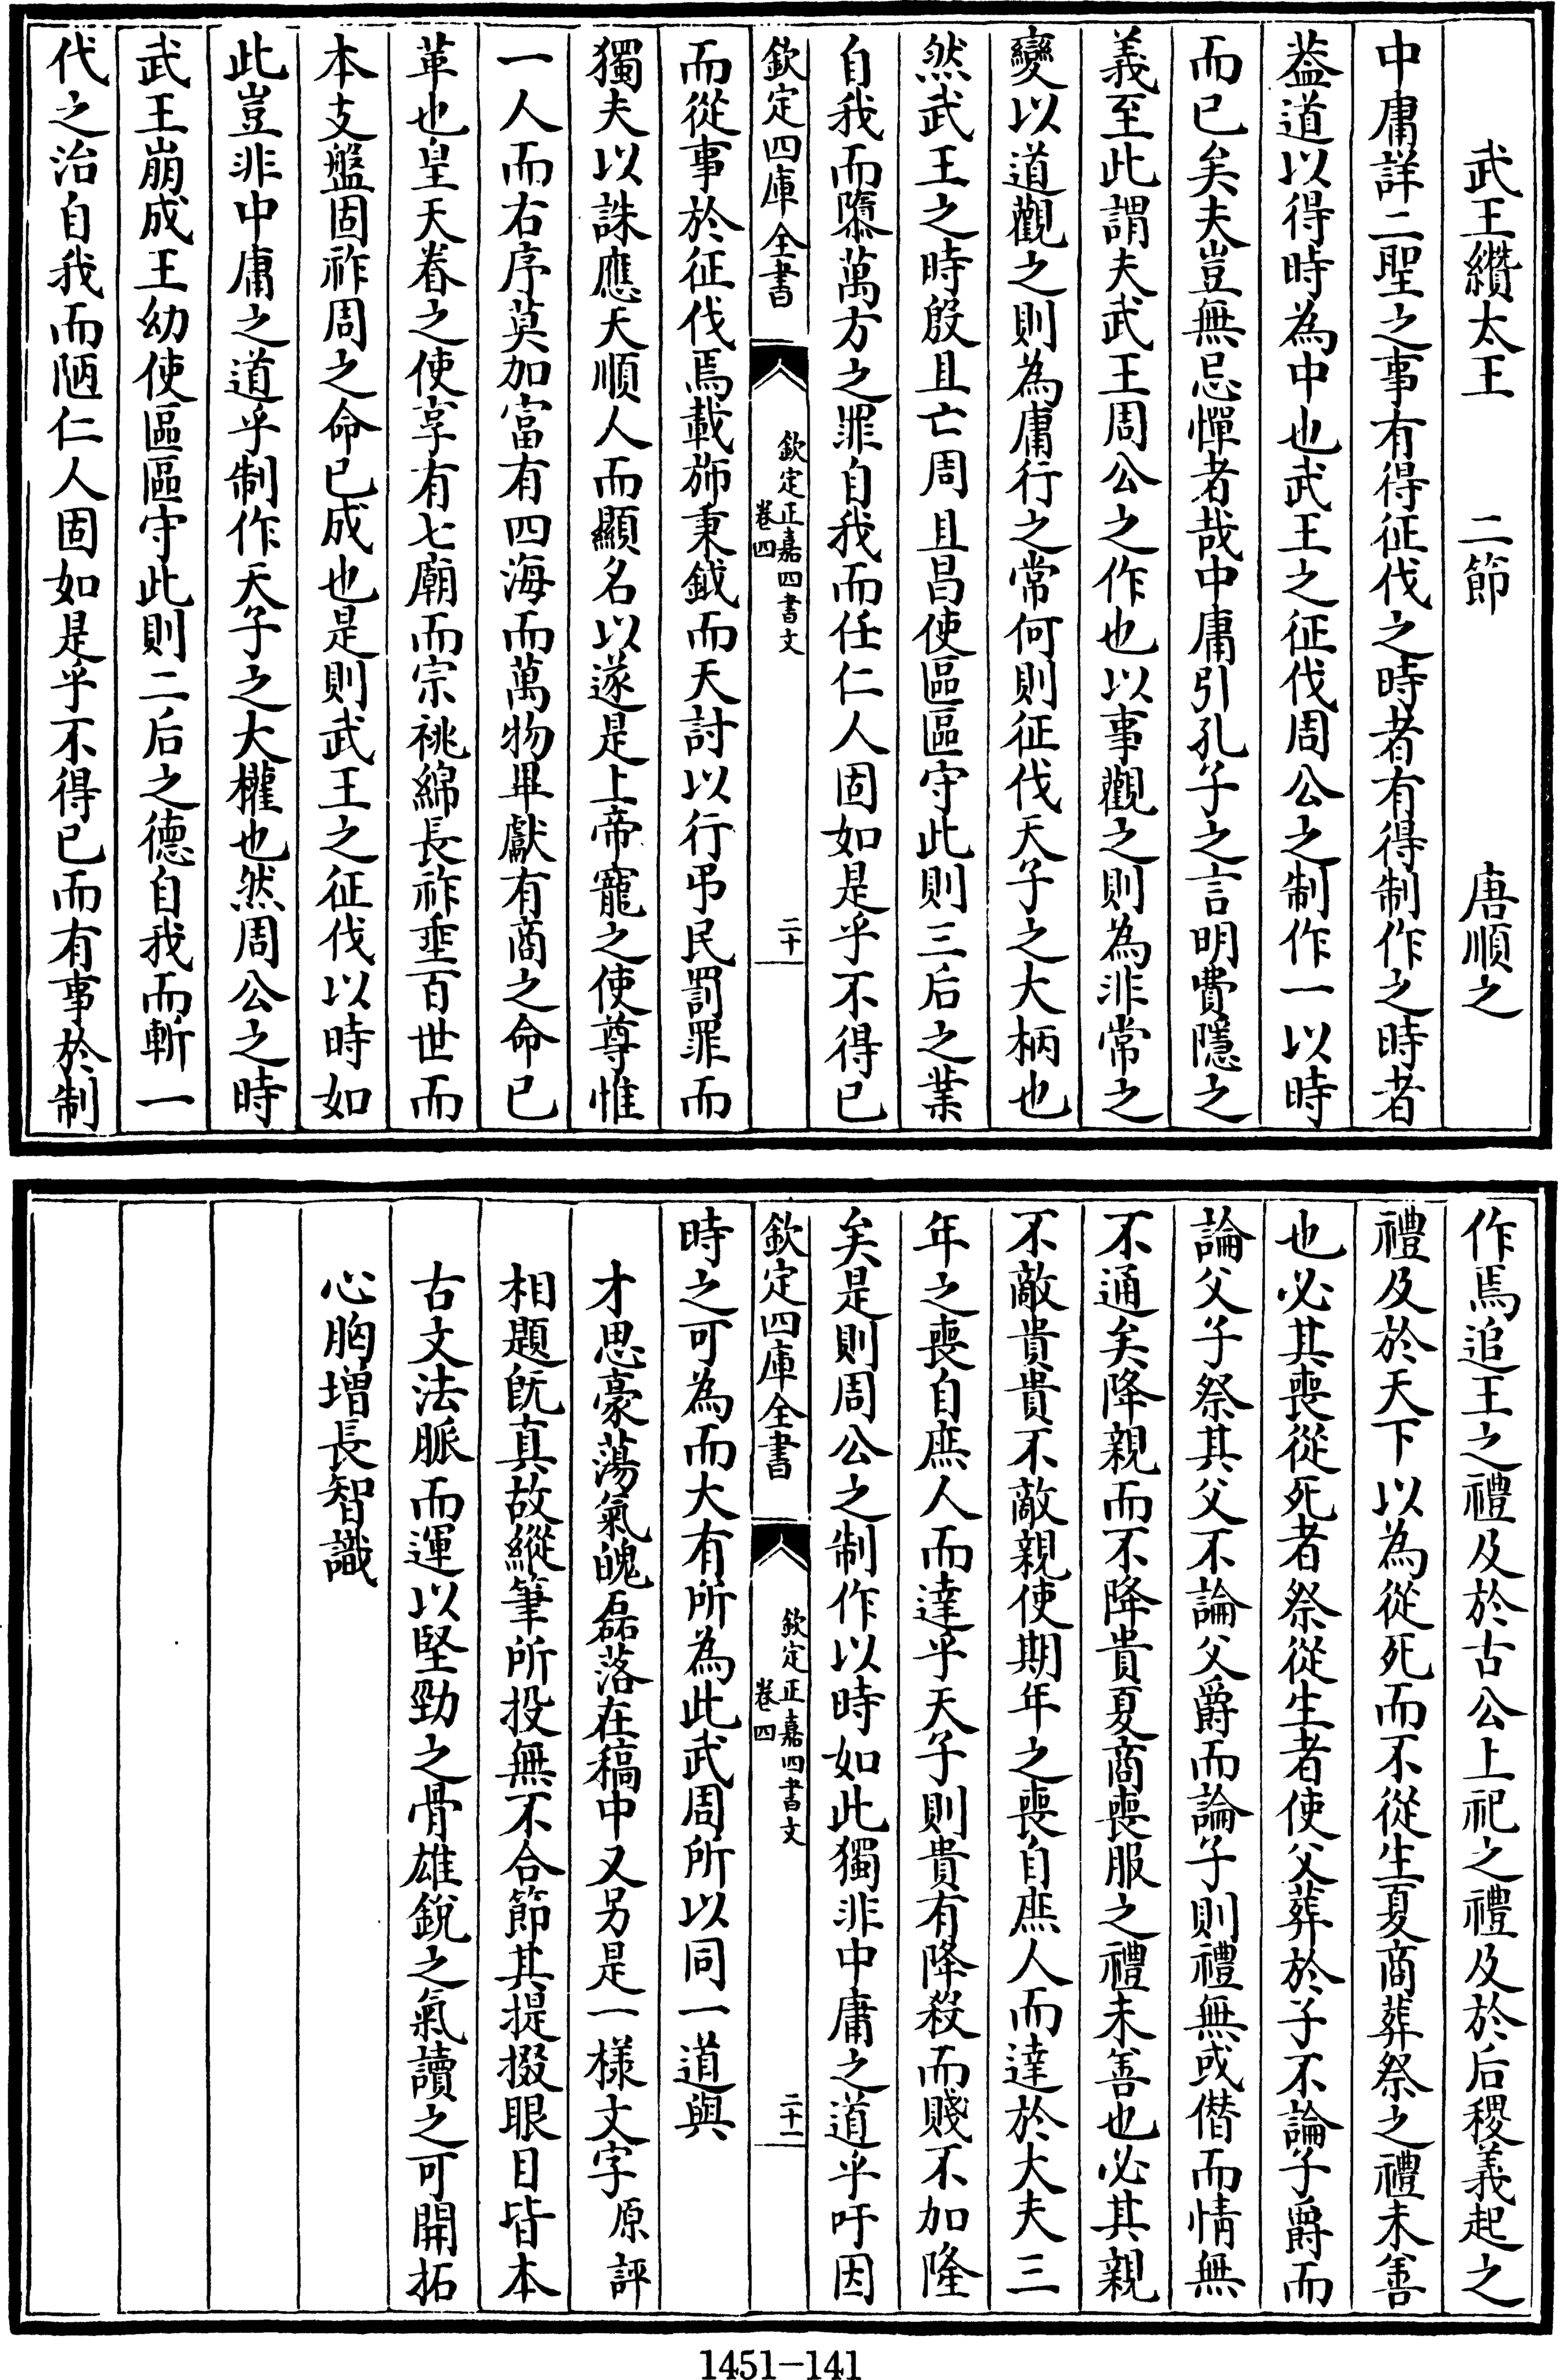 武王纘太王　二節　唐順之
中庸詳二聖之事有得征伐之時者有得制作之時者
葢道以得時為中也武王之征伐周公之制作一以時
而已矣夫豈無忌憚者哉中庸引孔子之言明費隱之
義至此謂夫武王周公之作也以事觀之則為非常之
變以道觀之則為庸行之常何則征伐天子之大柄也
然武王之時殷且亡周且昌使區區守此則三后之業
自我而隳萬方之罪自我而任仁人固如是乎不得已
欽定四庫全書
欽定正嘉四書文
卷四
二十
而從事於征伐焉載斾秉鉞而天討以行弔民罰罪而
獨夫以誅應天順人而顯名以遂是上帝寵之使尊惟
一人而右序莫加富有四海而萬物畢獻有商之命已
革也皇天眷之使享有七廟而宗祧綿長祚垂百世而
本支盤固祚周之命已成也是則武王之征伐以時如
此豈非中庸之道乎制作天子之大權也然周公之時
武王崩成王幼使區區守此則二后之德自我而斬一
代之治自我而陋仁人固如是乎不得已而有事於制
作焉追王之禮及於古公上祀之禮及於后稷義起之
禮及於天下以為從死而不從生夏商葬祭之禮未善
也必其喪從死者祭從生者使父葬於子不論子爵而
論父子祭其父不論父爵而論子則禮無或僭而情無
不通矣降親而不降貴夏商喪服之禮未善也必其親
不敵貴貴不敵親使期年之喪自庶人而達於大夫三
年之喪自庶人而達乎天子則貴有降殺而賤不加隆
矣是則周公之制作以時如此獨非中庸之道乎吁因
欽定四庫全書
欽定正嘉四書文
卷四
二十一
時之可為而大有所為此武周所以同一道與
才思豪蕩氣魄磊落在稿中又另是一樣文字原評
相題旣真故縱筆所投無不合節其提掇眼目皆本
古文法脈而運以堅勁之骨雄銳之氣讀之可開拓
心胸增長智識
1451-141